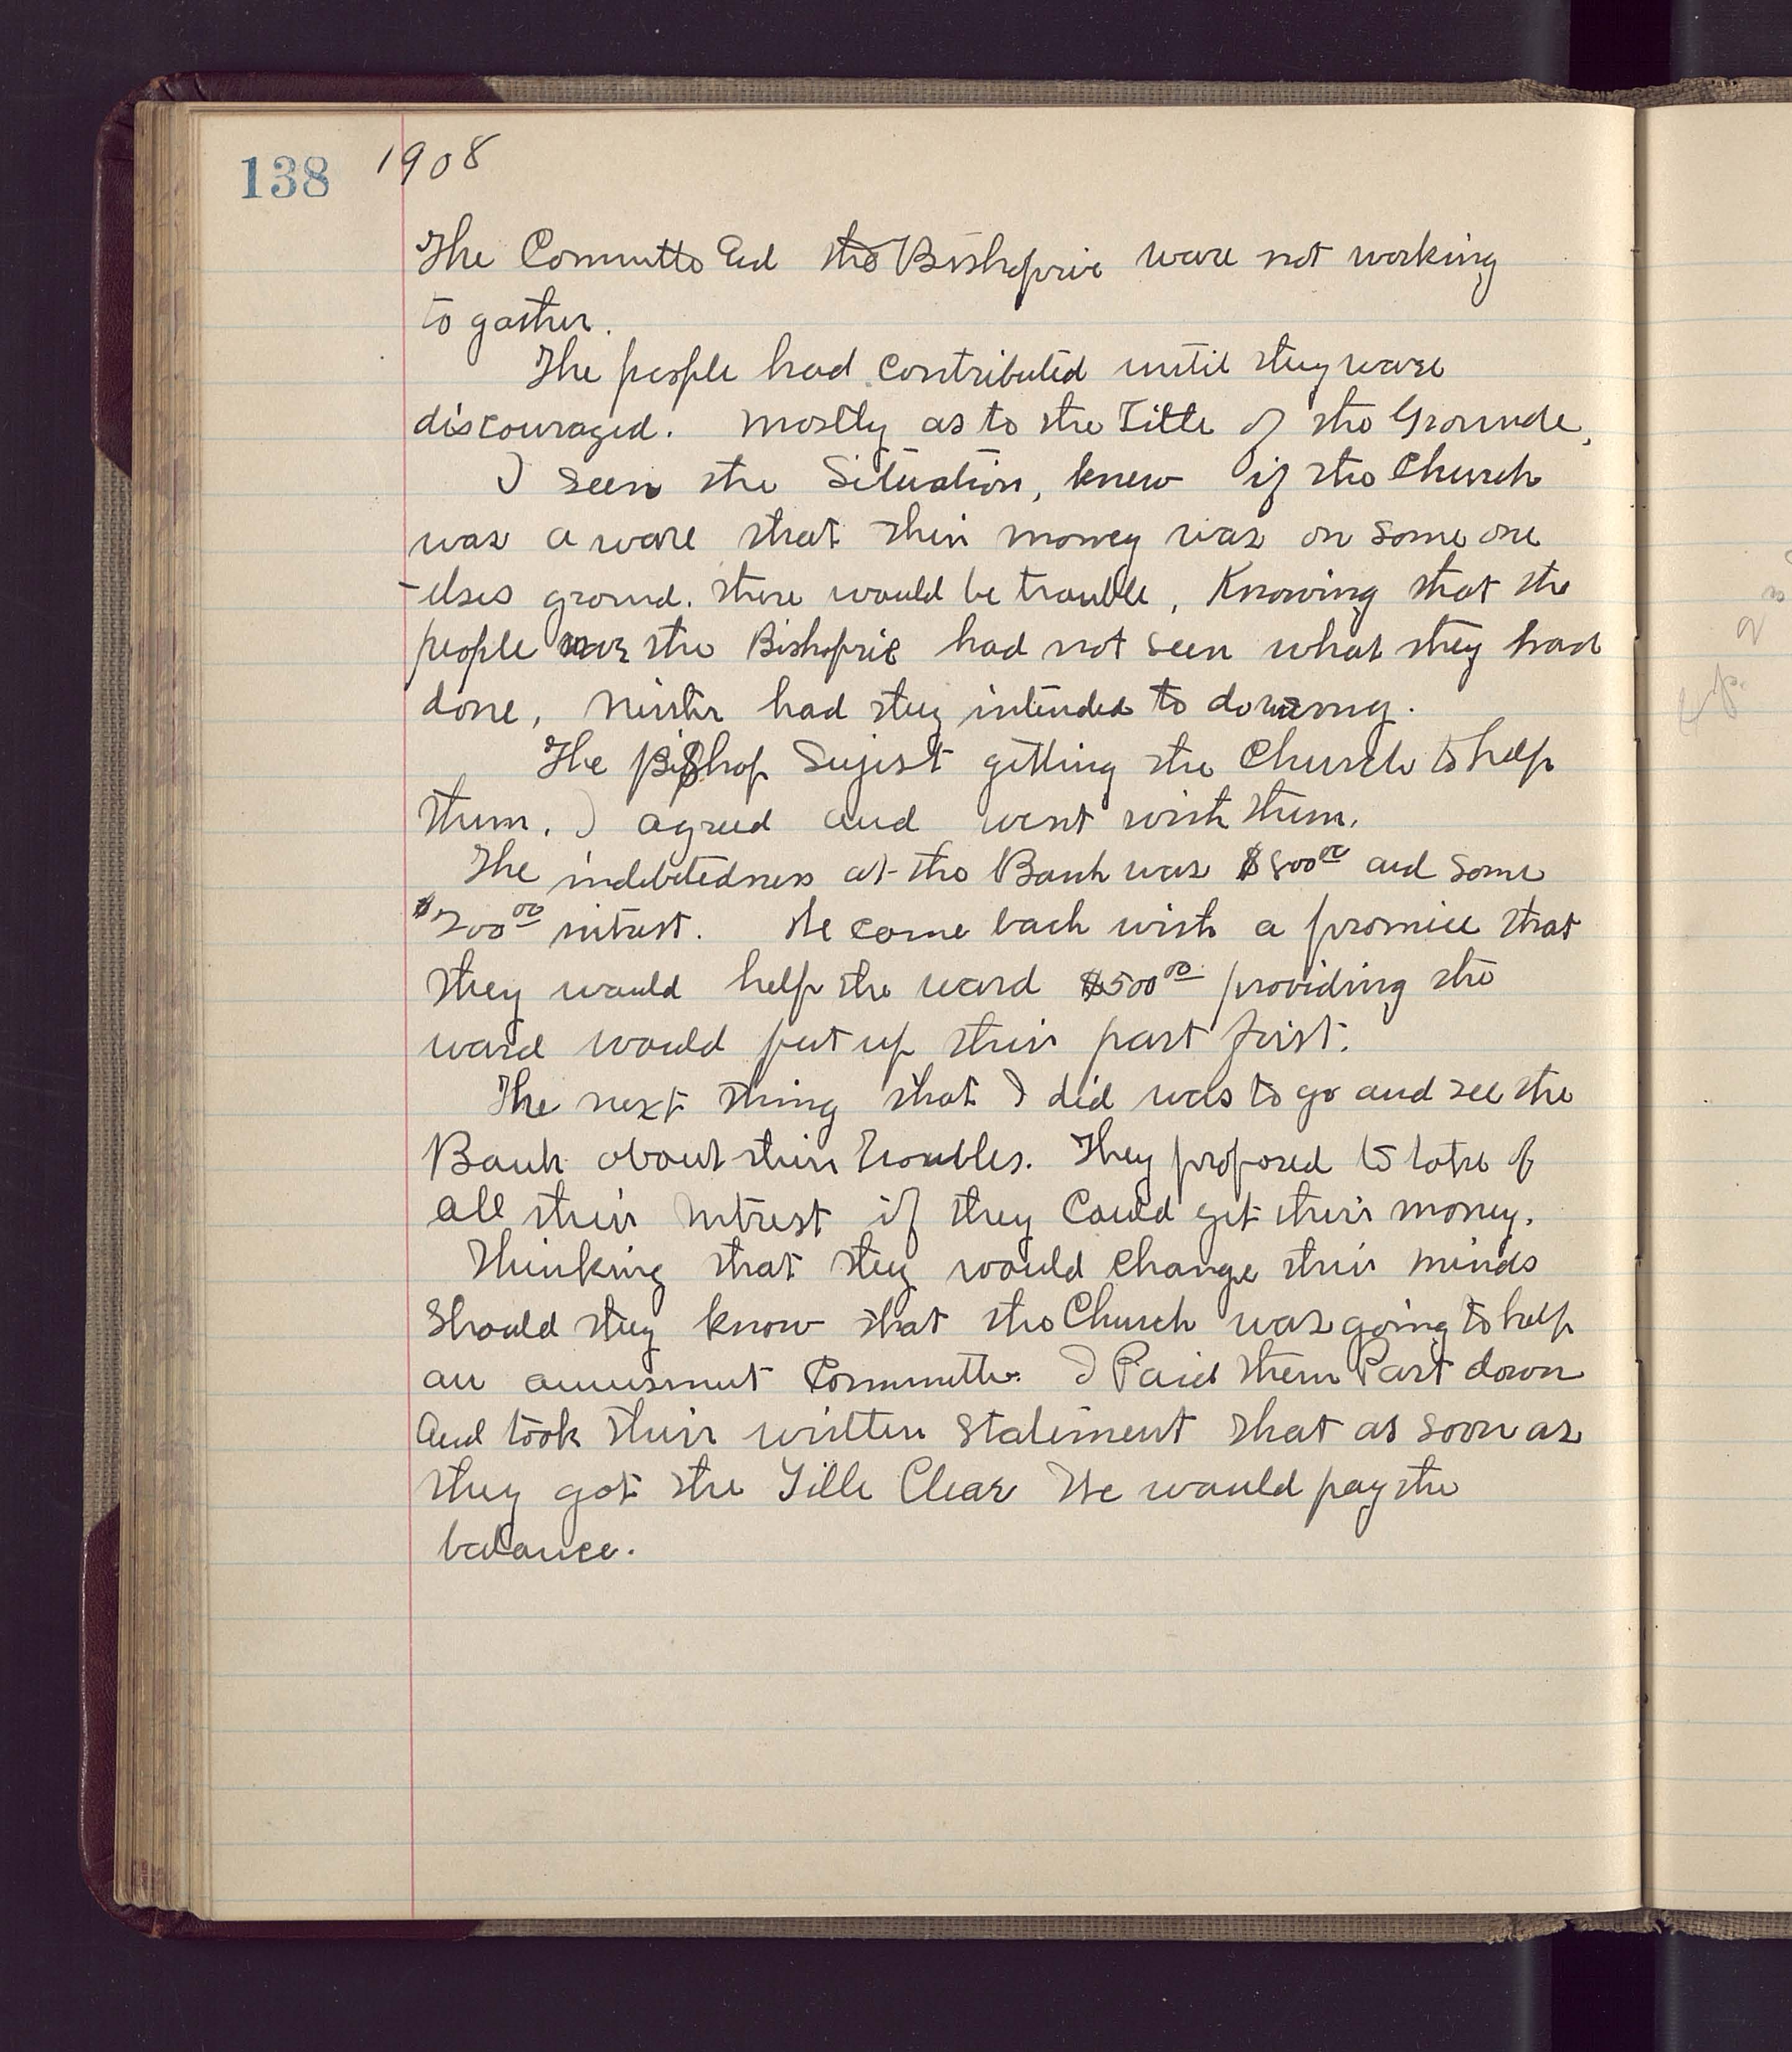 138 1908
The Committe and the Bishopric ware not working
to gather.
The people had contributed until they ware
discouraged. Mostly as to the Title of the Grounde.
I seen the Situation, knew if the Church
was a ware that their money was on some one
-elses ground. there would be trouble, Knowing that the
people nor the Bishopric had not seen what they had
done, Neither had they intended to do wrong.
The Bishop Sujest getting the Church to help
them. I agreed and went with them.
The indebtedness at the Bank was $800 00 and some
$200 00 intrest. We come back with a promice that
they would help the ward $500 00 providing the
ward would put up their part first.
The next thing that I did was to go and see the
Bank about their troubles. They proposed to take of
all their Intrest if they could get their money.
Thinking that they would change their minds
Should they know that the Church was going to help
an amusment Committe. I Paid them Part down
And took their written statement that as soon as
they got the Title Clear We would pay the
balance.